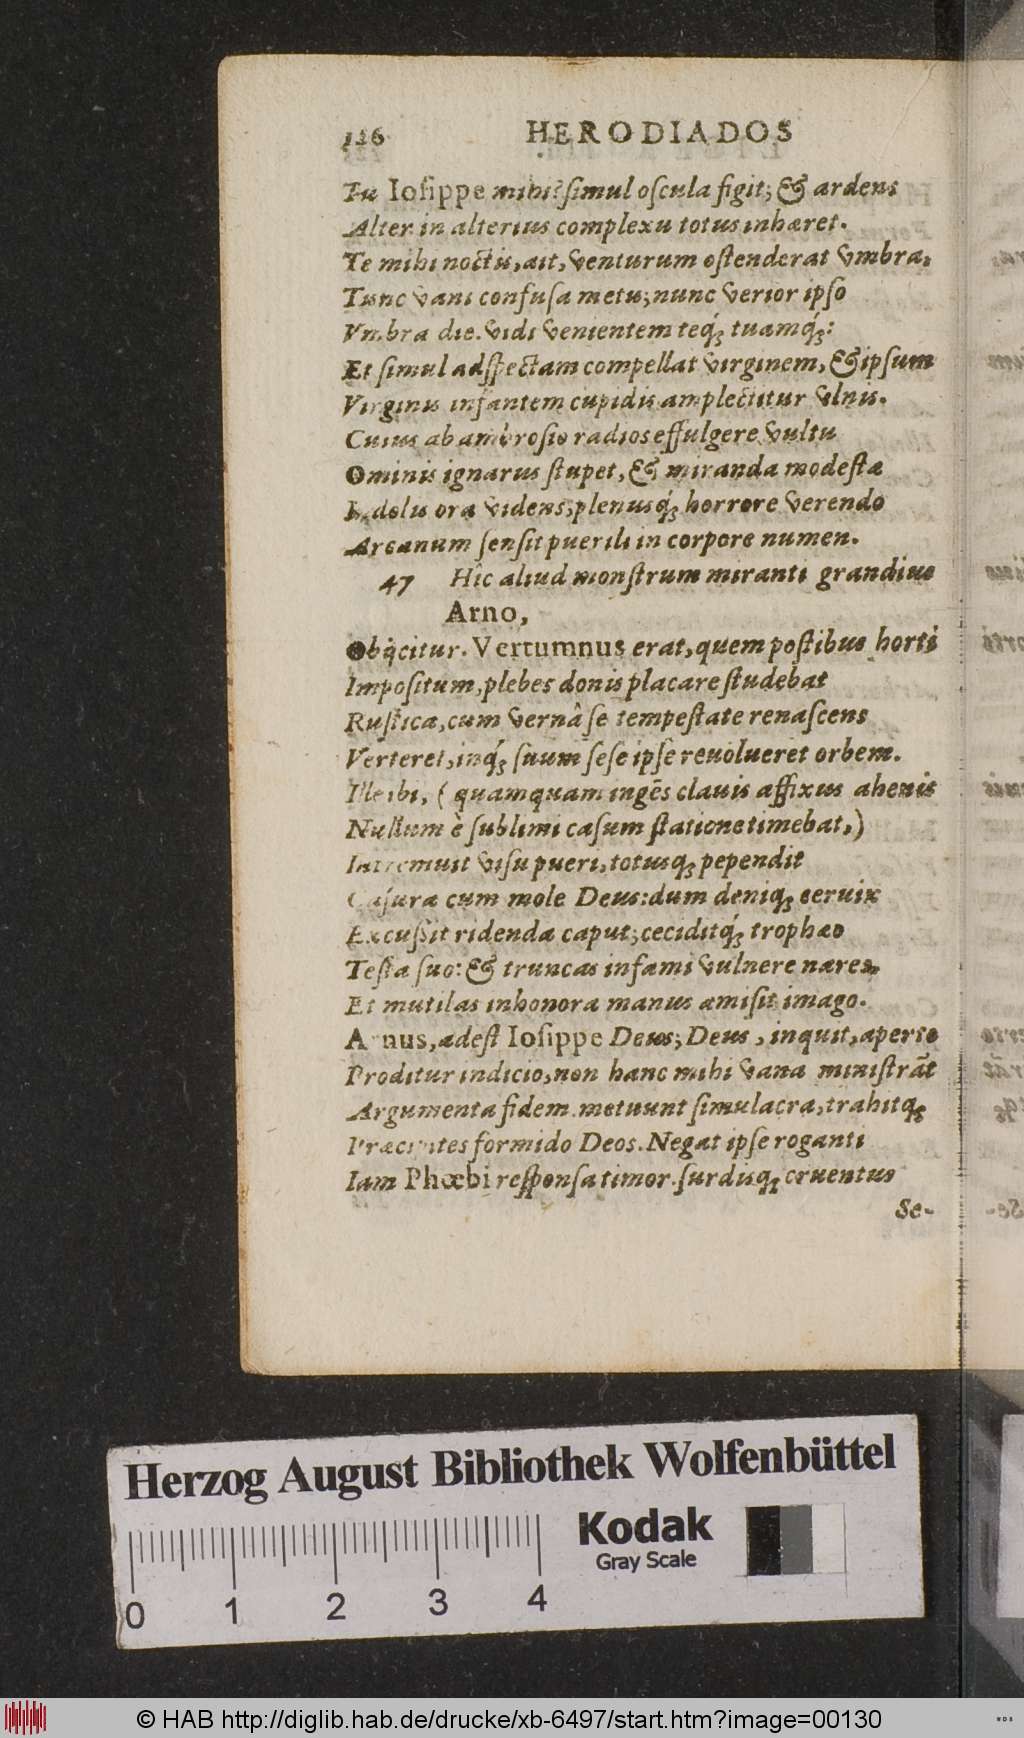 126 HERODIADOS
Tu Iosippe mihi? simul oscula figit; & ardens
Alter in alterius complexu totus inhæret.
Te mihi noctu, ait, venturum ostenderat vmbra,
Tunc vani confusa metu; nunc verior ipso
Vmbra die. vidi venientem teq́; tuamq́;:
Et simul adspectam compellat virginem, & ipsum
Virginis infantem cupidis amplectitur vlnis.
Cuius ab ambrosio radios effulgere vultu
Ominis ignarus stupet, & miranda modestæ
Indolis ora videns, plenusq́; horrore verendo
Arcanum sensit puerili in corpore numen.
47 Hîc aliud monstrum miranti grandius
Arno,
Obijcitur. Vertumnus erat, quem postibus horti
Impositum, plebes donis placare studebat
Rustica, cum vernâ se tempestate renascens
Verteret, inq́; suum sese ipse reuolueret orbem.
Ille ibi, ( quamquam ingēs clauis affixus ahenis
Nullum è sublimi casum statione timebat,)
Intremuit visu pueri, totusq; pependit
Casura cum mole Deus: dum deniq; ceruix
Excussit ridenda caput; ceciditq́; trophæo
Testa suo: & truncas infami vulnere nares,
Et mutilas inhonora manus amisit imago.
Arnus, adest Iosippe Deus; Deus, inquit, aperto
Proditur indicio, non hanc mihi vana ministrāt
Argumenta fidem. metuunt simulacra, trahitq;
Præcipites formido Deos. Negat ipse roganti
Iam Phœbi responsa timor. surdisq; cruentus
Se-
Herzog August Bibliothek Wolfenbüttel
Kodak
Gray Scale
0 1 2 3 4
© HAB http://diglib.hab.de/drucke/xb-6497/start.htm?image=00130